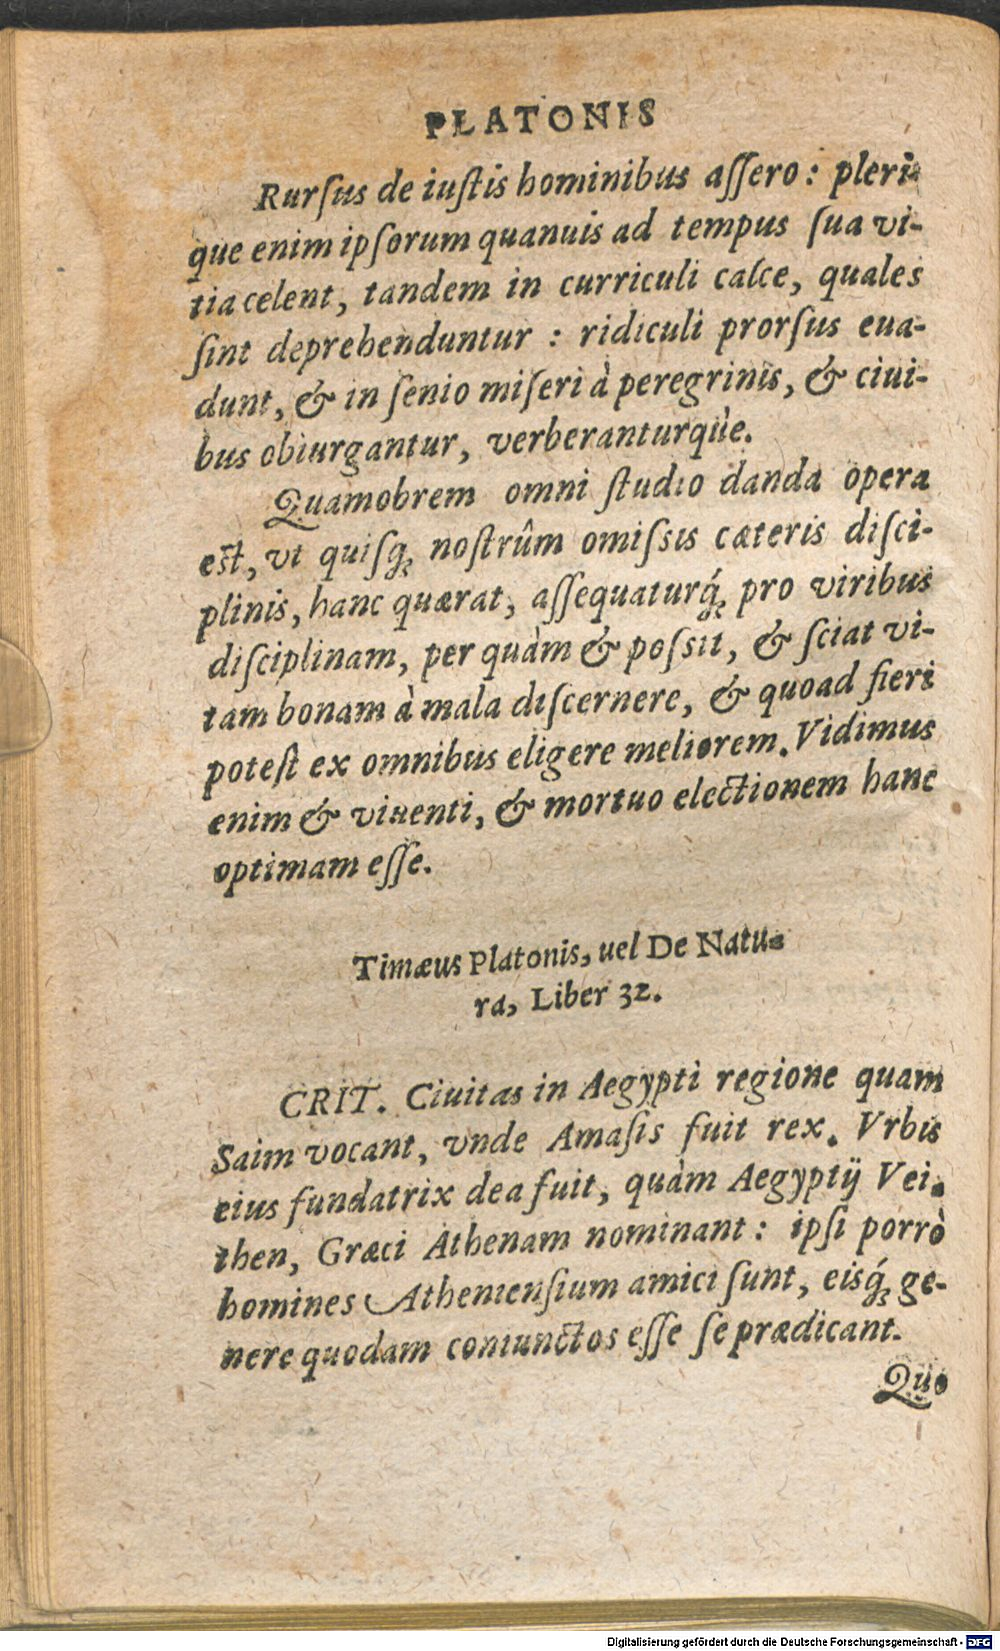 PLATONIS
Rurſus de iuſtis hominibus aſſero: pleri-
que enim ipſorum quanuis ad tempus ſua vi-
tia celent, tandem in curriculi calce, quales
ſint deprehenduntur : ridiculi prorſus eua-
dunt, & in ſenio miſeri à peregrinis, & ciui-
bus obiurgantur, verberanturqùe.
Quamobrem omni ſtudio danda opera
eſt, vt quiſq́ꝫ noſtrûm omiſsis cæteris diſci-
plinis, hanc quærat, aſſequaturq́ꝫ pro viribus
diſciplinam, per quàm & poſsit, & ſciat vi-
tam bonam à mala diſcernere, & quoad fieri
poteſt ex omnibus eligere meliorem. Vidimus
enim & viuenti, & mortuo electionem hanc
optimam eſſe.
Timæus Platonis, uel De Natu-
ra, Liber 32.
CRIT. Ciuitas in Aegypti regione quam
Saim vocant, vnde Amaſis fuit rex. Vrbis
eius fundatrix dea fuit, quàm Aegyptij Vei-
then, Græci Athenam nominant: ipſi porrò
homines Athenienſium amici ſunt, eisq́ꝫ ge-
nere quodam coniunctos eſſe ſe prædicant.
Quo
Digitalisierung gefördert durch die Deutsche Forschungsgemeinschaft - DFG